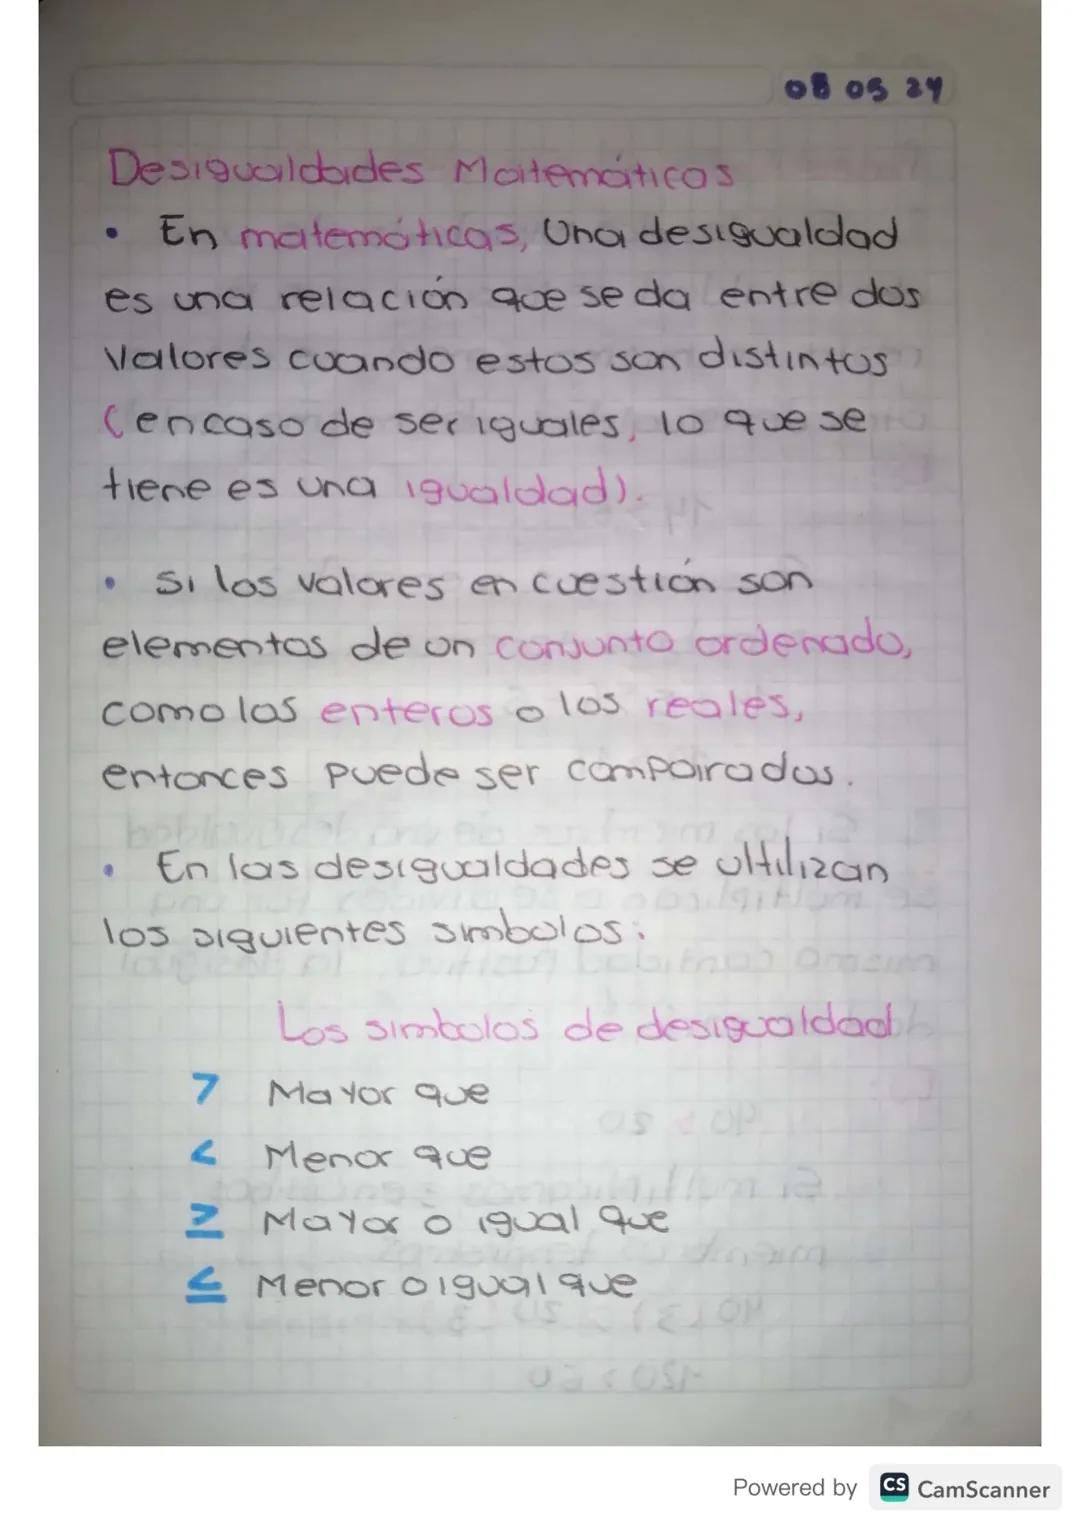 08 05 24
Desigualdades Matemáticas
• En matemáticas, Una desigualdad
es una relación que se da entre dos
Valores cuando estos son distintos
(en caso de ser iguales, lo que se
tiene es una igualdad).
• Si los valores en cuestión son
elementos de un conjunto ordenado,
como los enteros o los reales,
entonces puede ser comparados.
• En las desigualdades se ultilizan
los siguientes simbolos:
Los simbolos de desigualdad
> Mayor que
< Menor que
≥ Mayor o igual que
≤ Menor o igual que
Powered by CS CamScanner